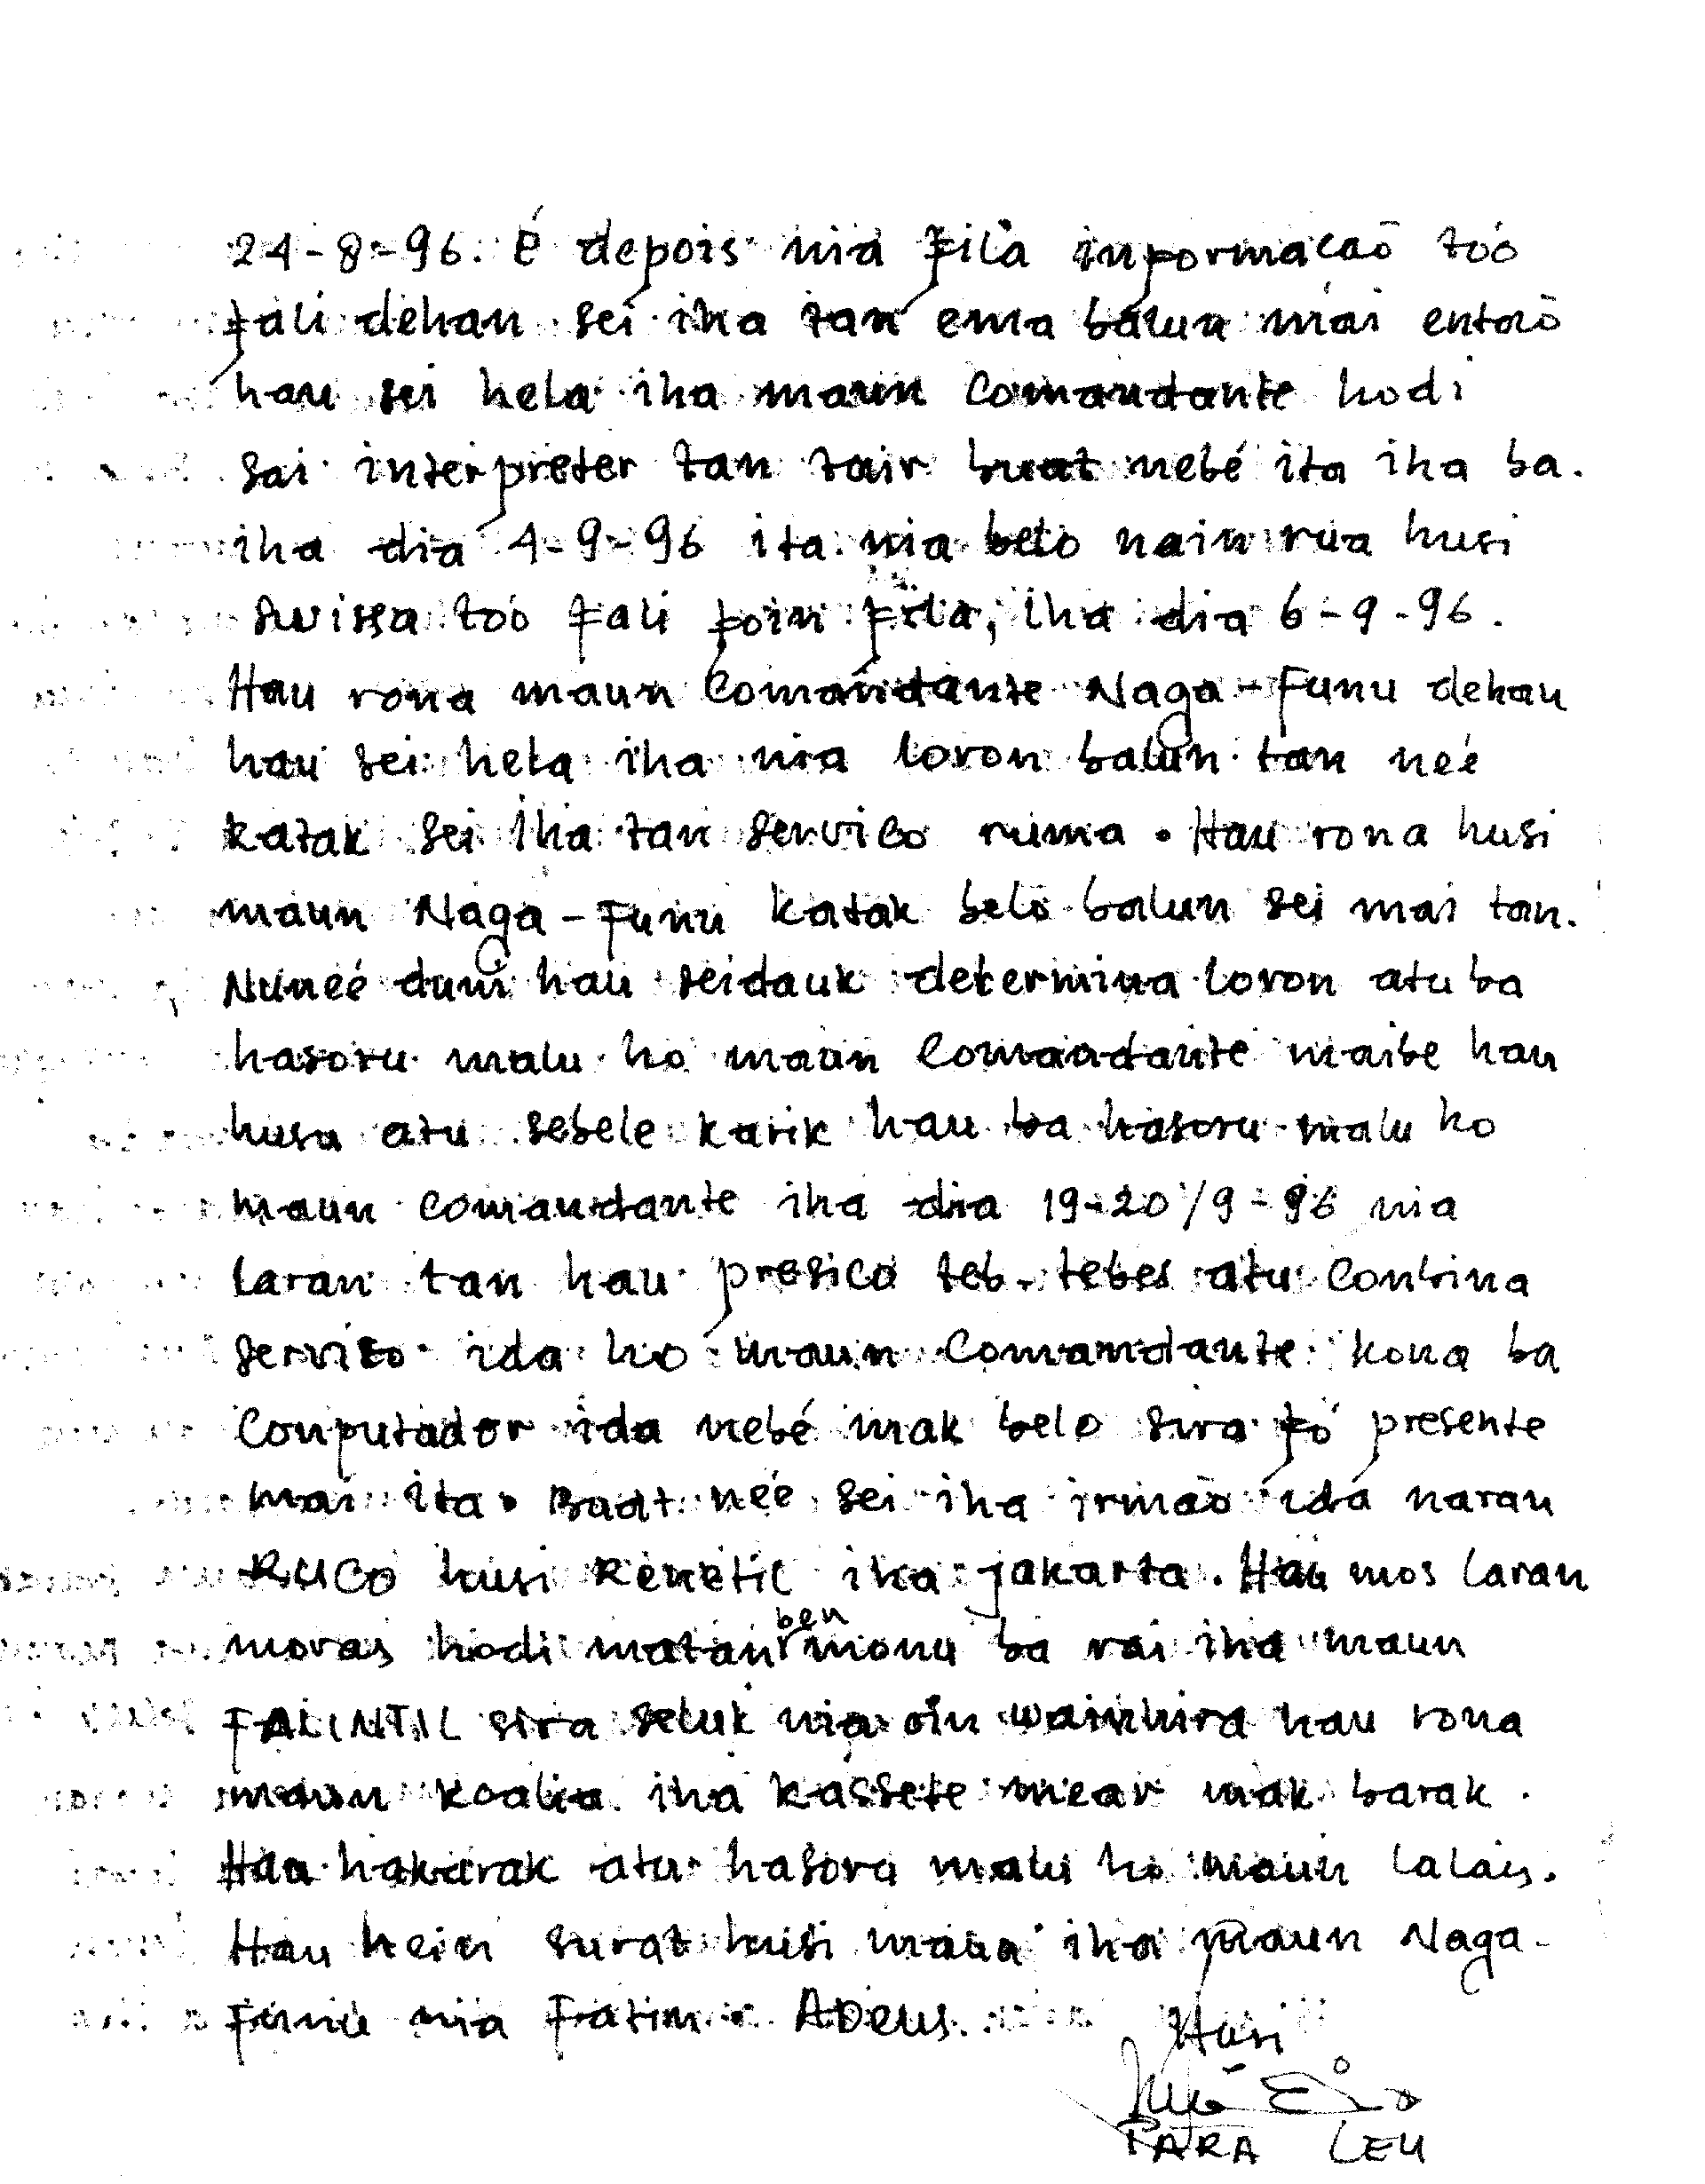 24-8-96. É depois nia fila informacaõ toó
fali dehan sei iha tan ema balun mai entaõ
hau sei hela iha maun Comandante hodi
sai interpreter tan tair buat nebé ita iha ba.
iha dia 4-9-96 ita nia belo nain rua husi
Suissa toó fali foin fila, iha dia 6-9-96.
Hau rona maun Comandante Naga-Funu dehan
hau sei hela iha nia loron balun tan neé
katak sei iha tan servico ruma. Hau rona husi
maun Naga-Funu katak belo balun sei mai tan.
Nuneé duni hau seidauk determina loron atu ba
hasoru malu ho maun Comandante maibe hau
husu atu sebele karik hau ba hasoru malu ho
maun Comandante iha dia 19-20/9-96 nia
laran tan hau presico teb-tebes atu Conbina
servico ida ho maun Comandante kona ba
Conputador ida nebé mak belo sira fó presente
mai ita. Baat neé sei iha irmaõ ida naran
RUCO husi Renetil iha jakarta. Hau mos laran
moras hodi matan ben monu ba rai iha maun
FALINTIL sira seluk nia oin wainhira hau rona
maun koalia iha kassete mear mak barak.
Hau hakarak atu hasoru malu ho maun lalais.
Hau hein surat husi maun iha maun Naga-
Funu nia Fatin. ADeus.
Husi
PARA LEU